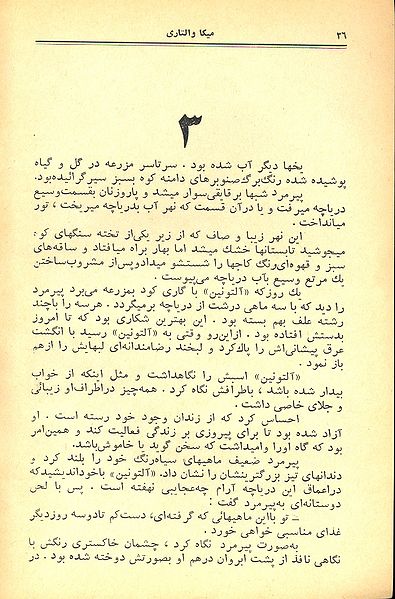 ۲۶
میکا والتاری
۳
یخها دیگر آب شده بود . سرتاسر مزرعه در گل و گیاه
پوشیده شده رنگ‌برگ‌صنوبرهای دامنه کوه بسبز سیر گرائیده‌بود.
پیرمرد شبها بر قایقی‌سوار میشد و پاروزنان بقسمت‌وسیع
دریاچه میرفت و یا درآن قسمت که نهر آب بدریاچه میریخت ، تور
میانداخت .
این نهر زیبا و صاف که از زیر یکی‌از تخته سنگهای کوه
میجوشید تابستانها خشك میشد اما بهار براه میافتاد و ساقه‌های
سبز و قهوه‌ای‌رنگ کاجها را شستشو میدادوپس‌از مشروب‌ساختن
یك مرتع وسیع بآب دریاچه می‌پیوست .
یك روزکه «آلتونین» با گاری کود بمزرعه می‌برد پیرمرد
را دید که با سه ماهی درشت از دریاچه برمیگردد . هرسه را باچند
رشته علف بهم بسته بود . این بهترین شکاری بود که تا امروز
بدستش افتاده بود . ازاین‌رو وقتی به «آلتونین» رسید با انگشت
عرق پیشانی‌اش را پاك‌کرد و لبخند رضامندانه‌ای لبهایش را ازهم
باز نمود .
«آلتونین» اسبش را نگاهداشت و مثل اینکه از خواب
بیدار شده باشد ، باطرافش نگاه کرد . همه‌چیز دراطراف‌او زیبائی
و جلای خاصی داشت .
احساس کرد که از زندان وجود خود رسته است . او
آزاد شده بود تا برای پیروزی بر زندگی فعالیت کند و همین‌امر
بود که گاه اورا وامیداشت که سخن گوید یا خاموش‌باشد.
پیرمرد ضعیف ماهیهای سیاه‌رنگ خود را بلند کرد و
دندانهای تیز بزرگترینشان را نشان داد. «آلتونین» باخوداندیشیدکه
دراعماق این دریاچه آرام چه‌عجایبی نهفته است . پس با لحن
دوستانه‌ای به‌پیرمرد گفت :
ـ تو بااین ماهیهائی که گرفته‌ای، دست‌کم تادوسه روزدیگر
غذای مناسبی خواهی خورد .
به‌صورت پیرمرد نگاه کرد ، چشمان خاکستری رنگش با
نگاهی نافذ از پشت ابروان درهم او بصورتش دوخته شده بود . در